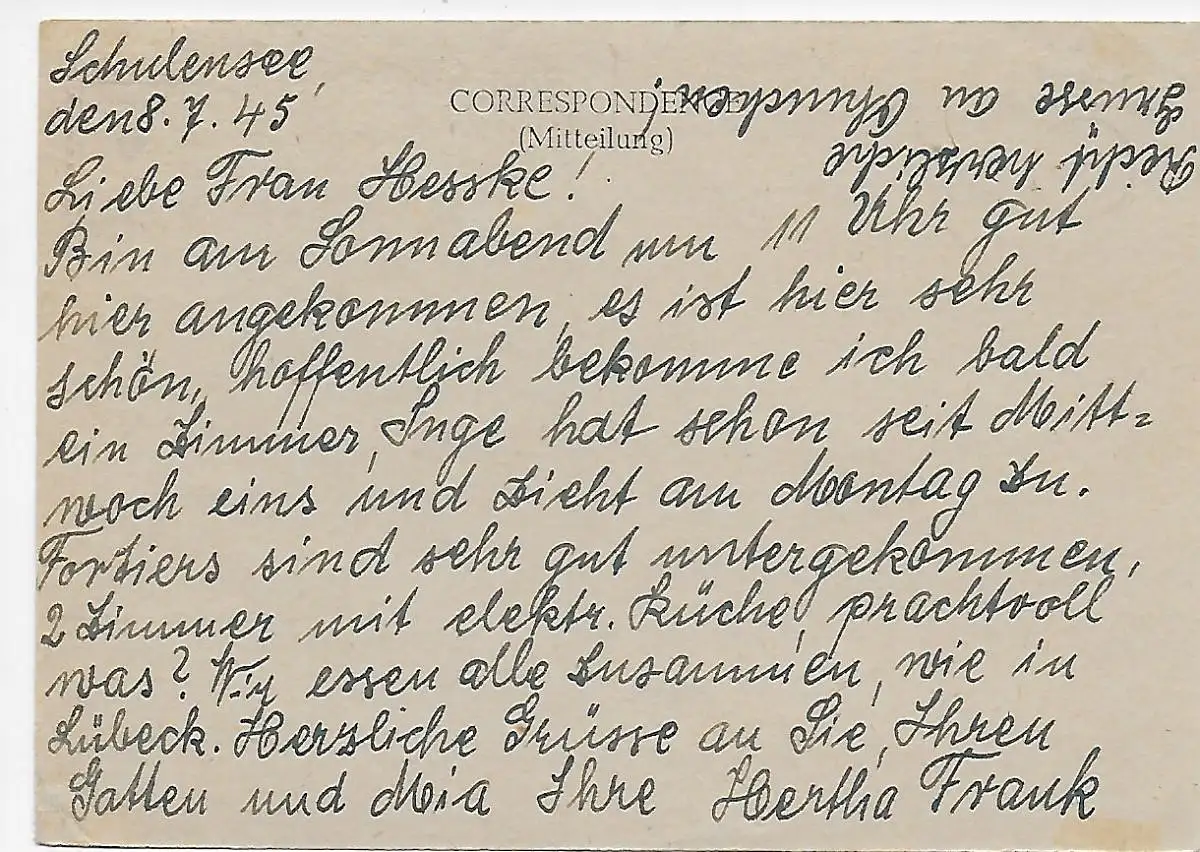 Schulensee,
den 8. 7. 45
CORRESPONDENCE
(Mitteilung)
Liebe Frau Hesske!
Bin am Sonnabend um 11 Uhr gut
hier angekommen, es ist hier sehr
schön, hoffentlich bekomme ich bald
ein Zimmer, Inge hat schon seit Mitt=
woch eins und zieht am Montag zu.
Fortiers sind sehr gut untergekommen,
2 Zimmer mit elektr. Küche, prachtvoll
was? Wir essen alle zusammen, wie in
Lübeck. Herzliche Grüsse an Sie, Ihren
Gatten und Mia Ihre Hertha Frank
Recht herzliche
Grüsse an